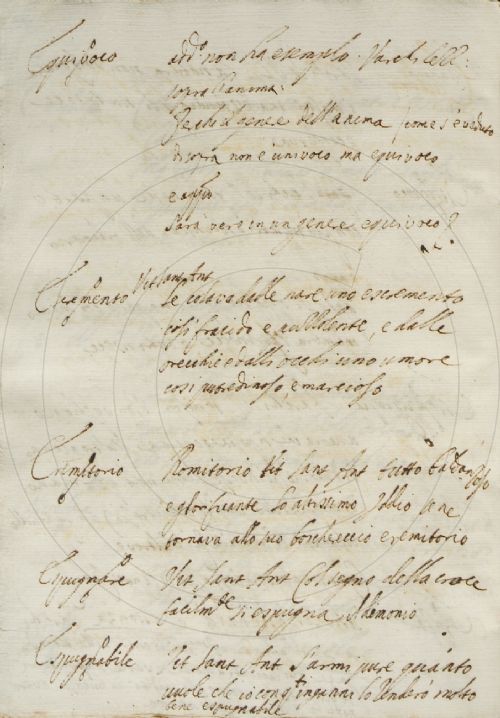 Equivoco add.o non ha esempio. Varch. Lett:
sopra l'anima:
Se che il genere dell'anima come s'è veduto
di sopra non è univoco ma equivoco
e appo
Sarà vero in un genere equivoco?
Escremento Vit Sant Ant
Le colava dalle nare uno escremento
così fracido e , e dalle
orecchie e dalli occhi uno umore
così putredinoso, e marcioso
Eremitorio Romitorio Vit Sant Ant tutto
e glorificante lo altissimo Iddio se ne
tornava allo suo boschereccio eremitorio
Espugnare Vit Sant Ant Col segno della croce
facilm.te si espugna il demonio
Espugnabile Vit Sant Ant Parmi pure quanto
vuole che io con inganni lo renderò molto
bene espugnabile